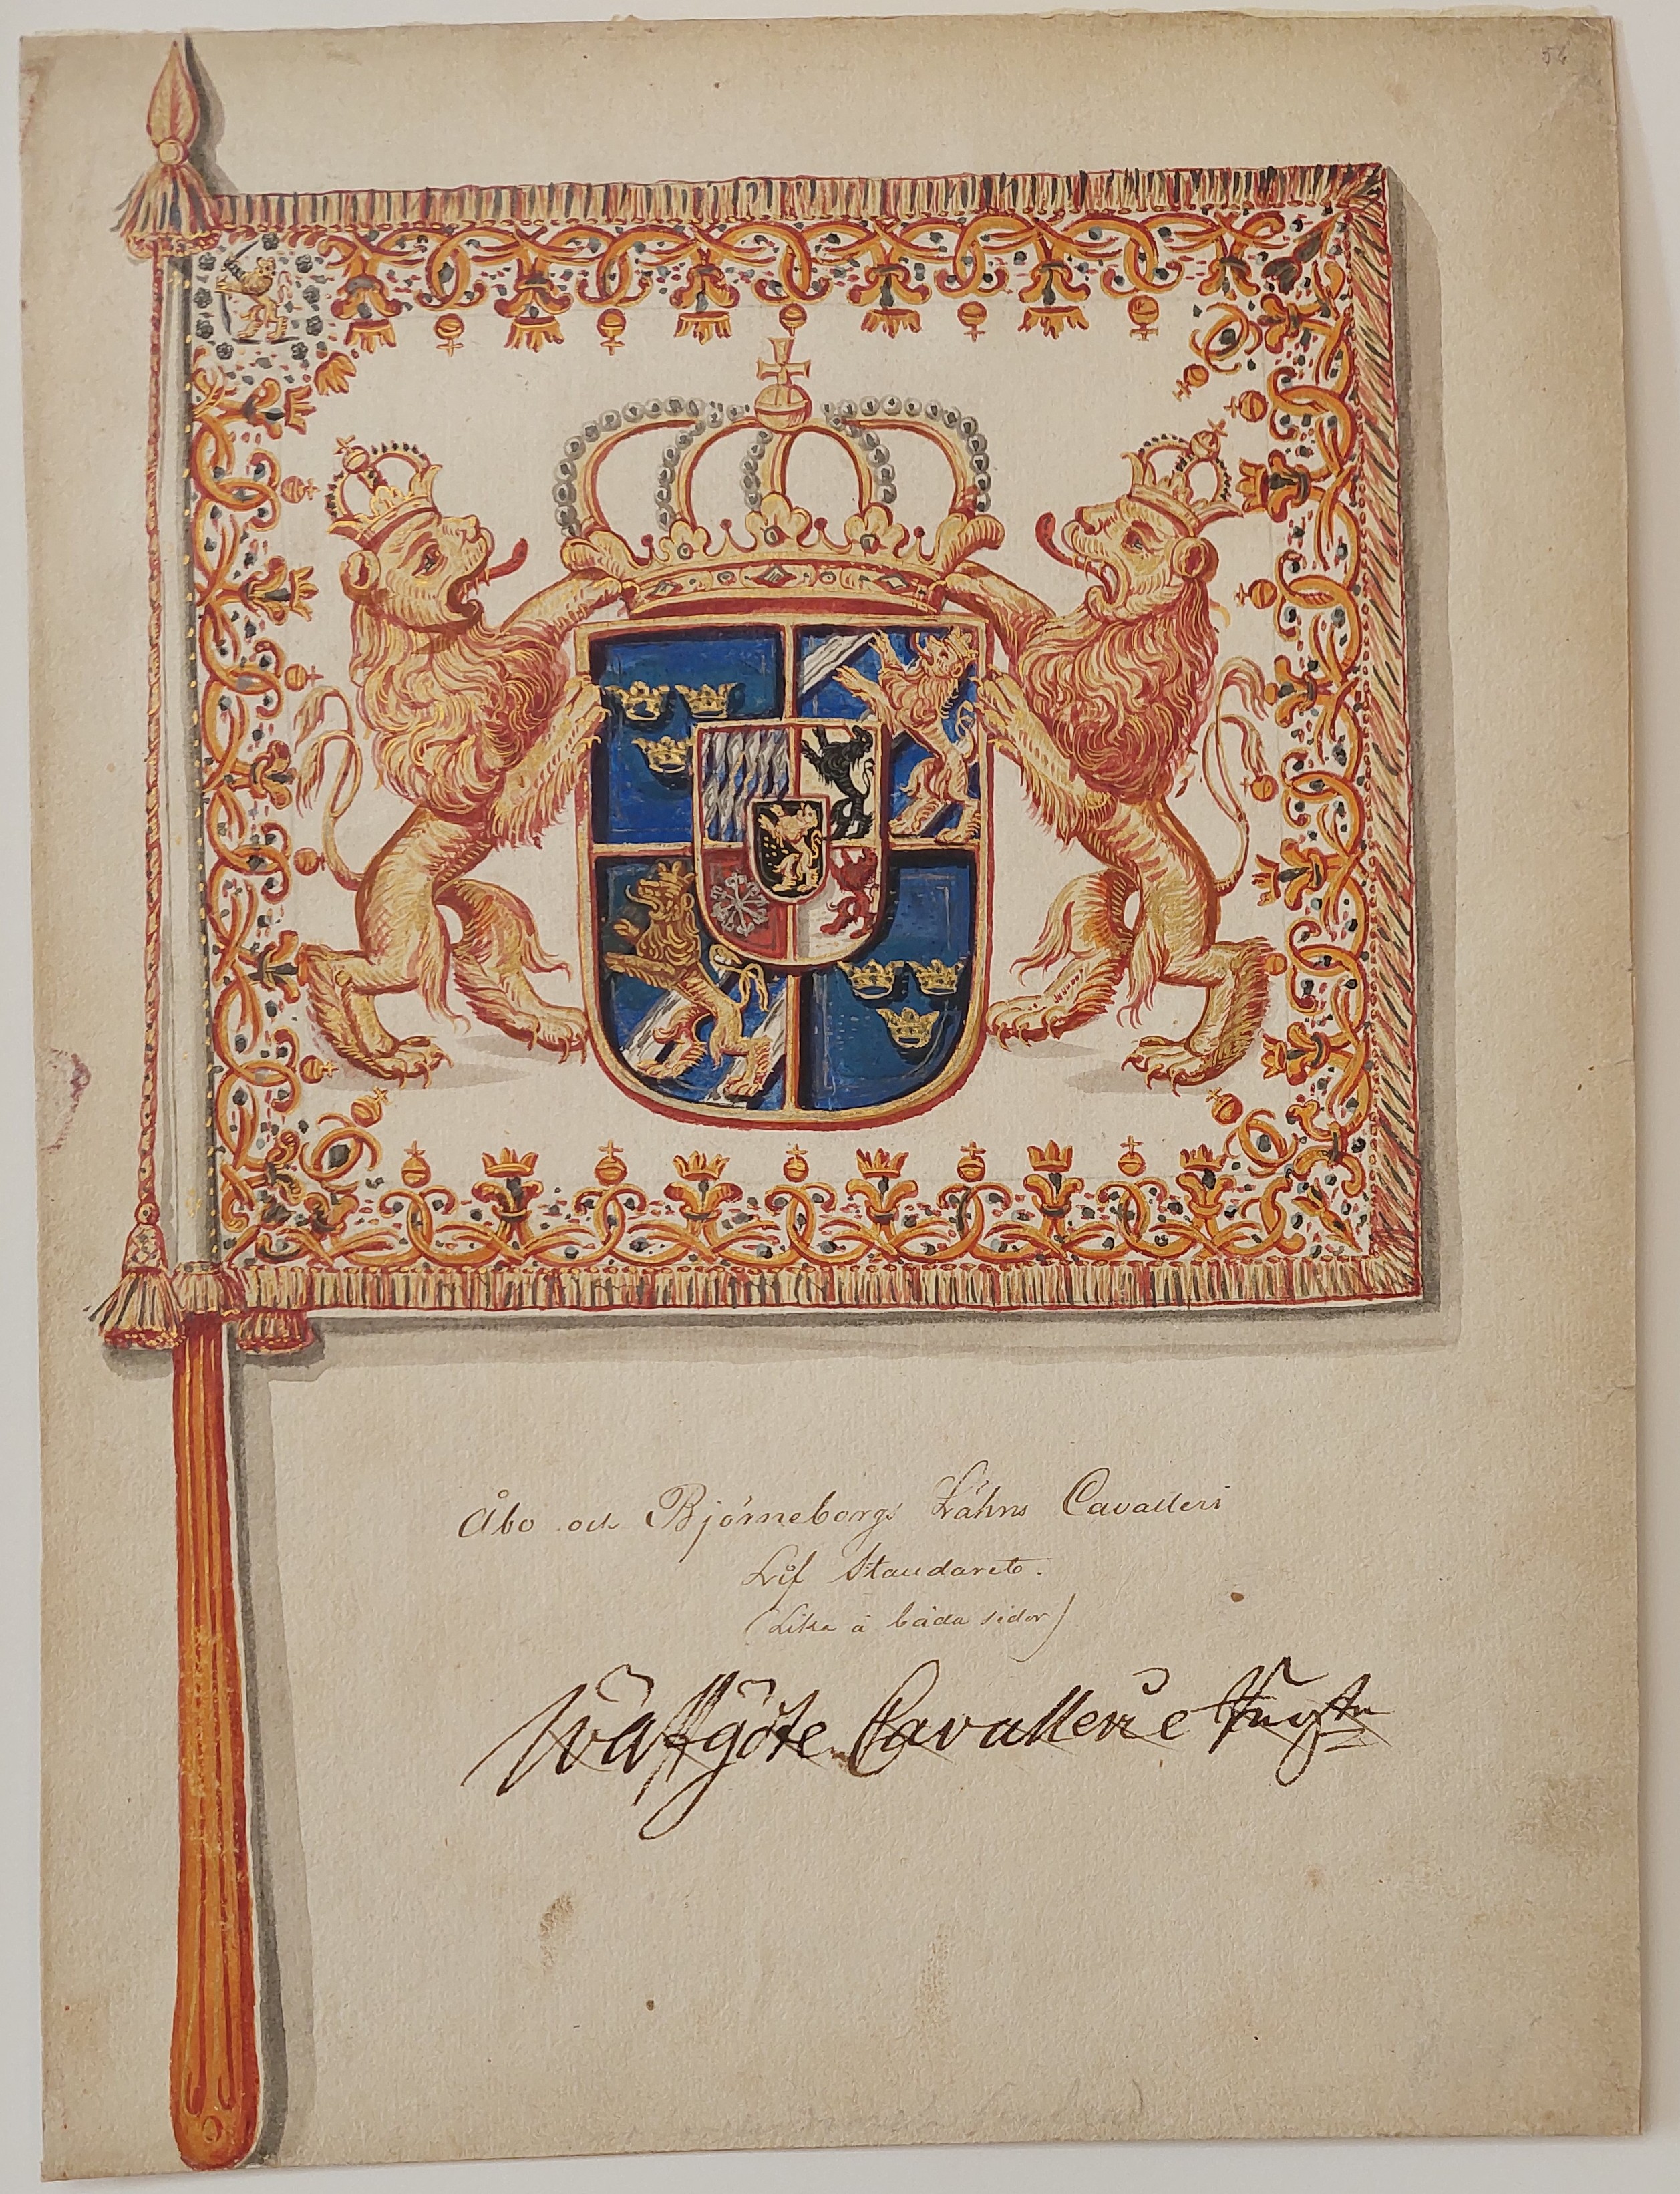 56
Åbo och Björneborgs Lähns Cavalleri
Lif Standaret.
(Lika å båda sidor)
Wästgöte Cavallerie